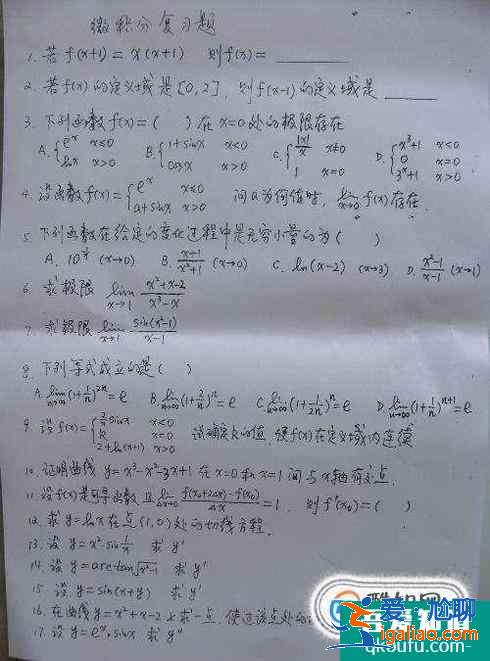 微积分复习题
1. 若f(x+1)=x(x+1) 则f(x)=________
2. 若f(x)的定义域是[0,2],则f(x-1)的定义域是______
3. 下列函数f(x)=( )在x=0处的极限存在
A. { e^x x≤0 ; lnx x>0 B. { 1+sinx x<0 ; cosx x>0 C. { |x|/x x≠0 ; 1 x=0 D. { x³+1 x<0 ; 0 x=0 ; 3^x+1 x>0
4. 设函数f(x)= { e^x x≤0 ; a+sinx x>0 问a为何值时, lim x→0 f(x)存在.
5. 下列函数在给定的变化过程中是无穷小量的为( )
A. 10^(1/x) (x→0) B. (x+1)/(x²+1) (x→0) C. ln(x-2) (x→3) D. (x²-1)/(x-1) (x→1)
6. 求极限 lim x→1 (x²+x-2)/(x³-x)
7. 求极限 lim x→1 sin(x²-1)/(x-1)
8. 下列等式成立的是( )
A. lim n→∞ (1+1/n)^2n=e B. lim n→∞ (1+2/n)^n=e C. lim n→∞ (1+1/2n)^n=e D. lim n→∞ (1+1/n)^n+1=e
9. 设f(x)= { sinx x<0 ; k x=0 ; 2+ln(x+1) x>0 试确定k的值,使f(x)在定义域内连续
10. 证明曲线 y=x³-x²-3x+1 在x=0和x=1间与x轴有交点.
11. 设f(x)是可导函数且 lim Δx→0 (f(x₀+2Δx)-f(x₀))/Δx=1, 则f'(x₀)=( )
12. 求y=lnx在点(1,0)处的切线方程.
13. 设 y=x²·sin 1/x 求y'
14. 设 y=arctan√(x²-1) 求y'
15. 设 y=sin(x+y) 求y'
16. 在曲线y=x²+x-2上求一点,使过该点处的
17. 设y=e^x·sinx 求y''
爱尴聊
igaliao.com
qksufu.com